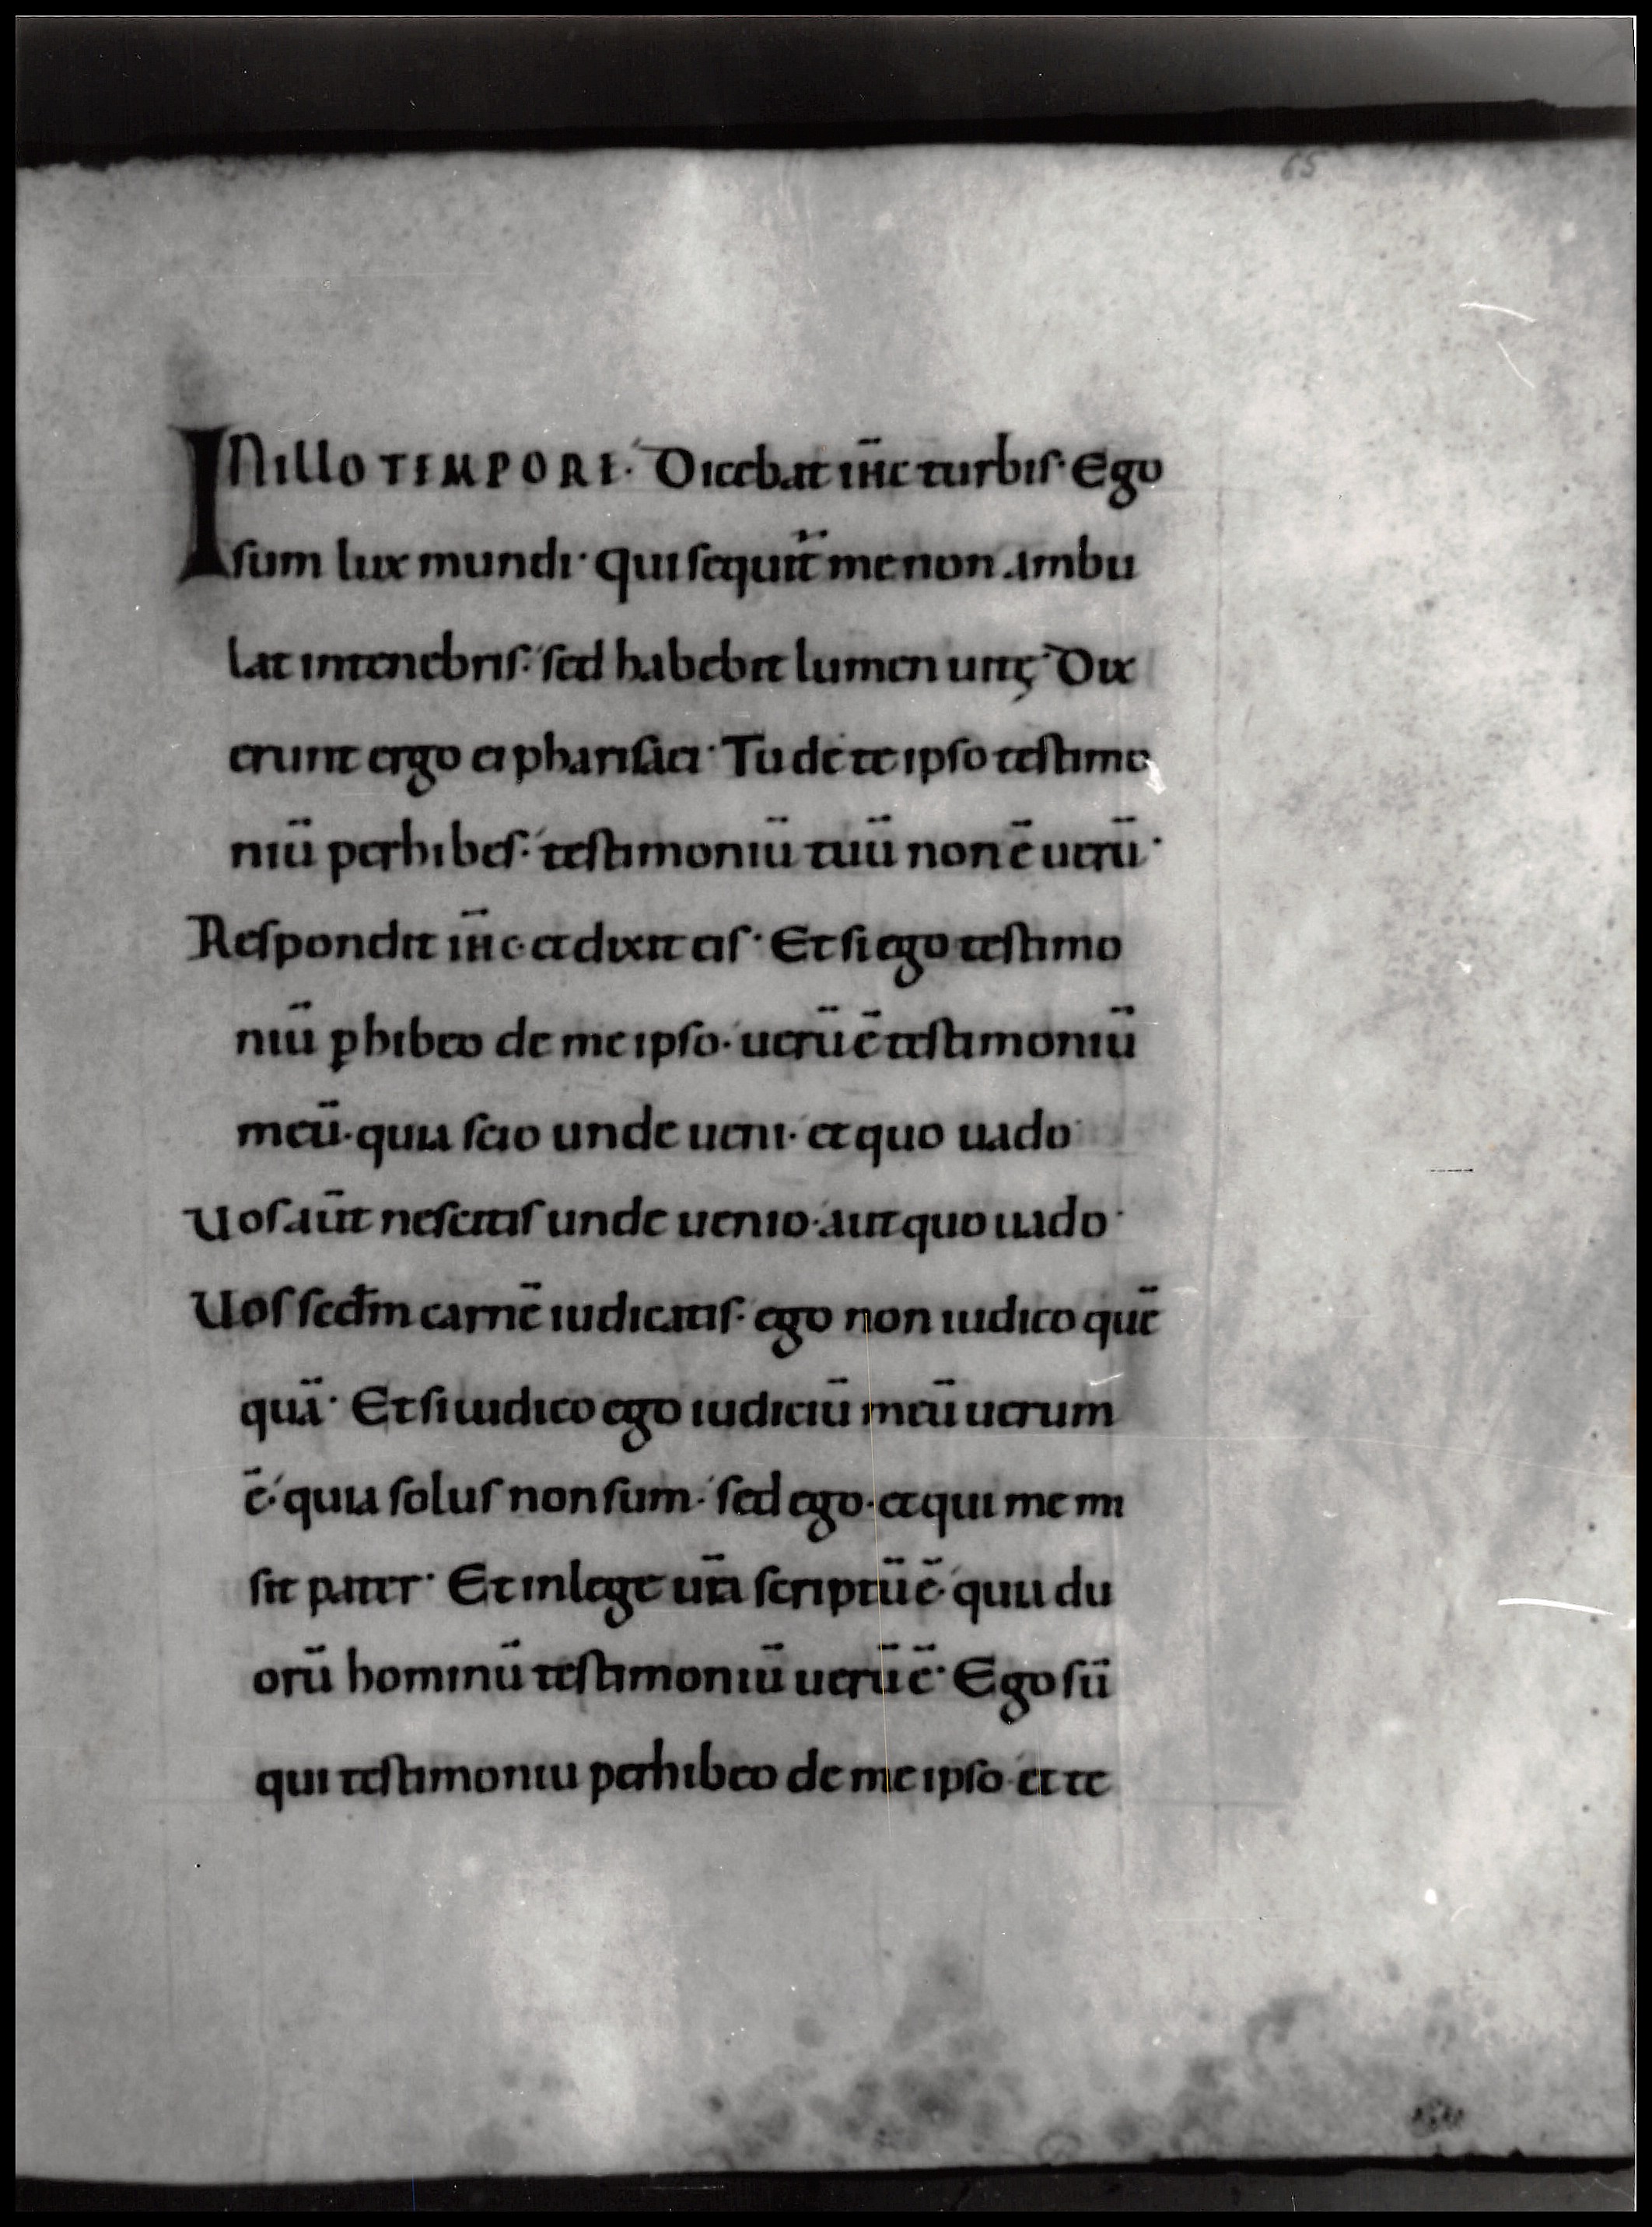 65
IN illo TEMPORE· Dicebat ihc turbis· Ego
sum lux mundi· qui sequit̄ me non ambu
lat in tenebris· sed habebit lumen uitę· Dix
erunt ergo ei pharisaei· Tu de te ipso testimo
niū perhibes· testimoniū tuū non ē uerū·
Respondit ihc· et dixit eis· Et si ego testimo
niū ꝑhibeo de me ipso· uerū ē testimoniū
meū· quia scio unde ueni· et quo uado·
Uos aūt nescitis unde uenio· aut quo uado·
Uos scdm̄ carnē iudicatis· ego non iudico quē
quā· Et si iudico ego iudiciū meū uerum
ē· quia solus non sum· sed ego· et qui me mi
sit pater· Et in lege ūra scriptū ē· quia du
orū hominū testimoniū uerū ē· Ego sū
qui testimoniu perhibeo de me ipso· et te